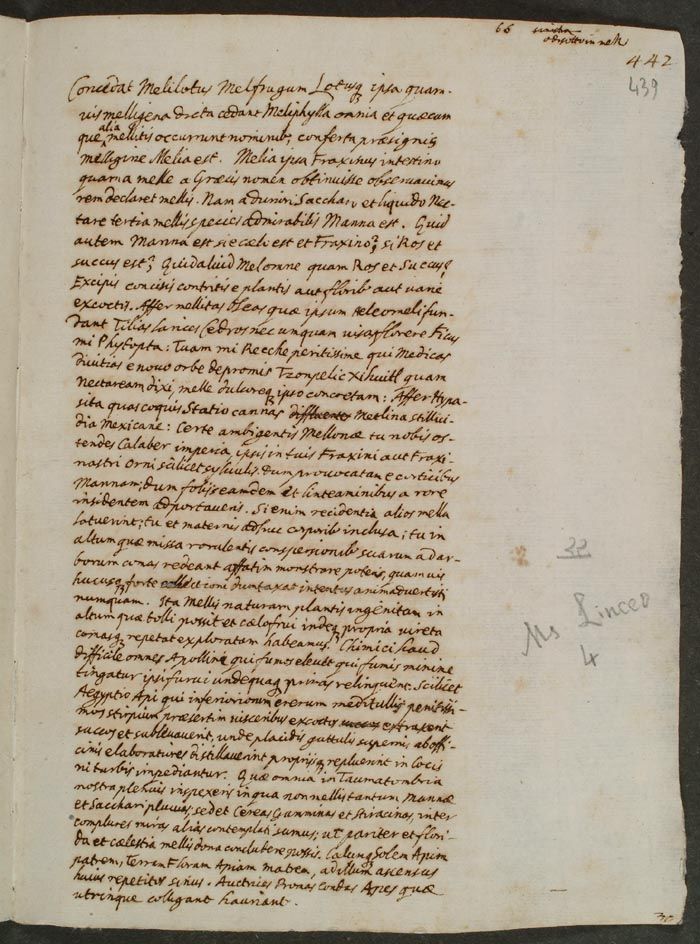 66 sinistra
442
439
Concedat Melilotus Melfrugum Lotusq ipsa quam-
vis melligena dicta cedant Meliphylla omnia et quæcum
que alia mellitis occurrunt nominib; conferta præsignis
melligine Melia est. Melia ipsa Fraxinus intestino
quarna melle a Græcis nomen obtinuisse observavimus
rem declaret mellis. Nam ad uniri Saccharo et liquido Nec-
tare tertia mellis species admirabilis Manna est. Quid
autem Manna est si e cæli est et Fraxino? si Ros et
succus est? Quid aliud Mel omne quam Ros et Succus?
Excipis concisis contritis e plantis aut florib aut vané
excoctis. Affer mellitas Oleas quæ ipsum eleomeli fun-
dant Tilias Larices Cedros necumquam visas florere Ficus
mi Phytopta: Tuam mi Recche peritissime qui Medicas
divitias e novo orbe depromis Tzonpelic Xihuitl quam
Nectaream dixi, melle dulcoreq ipso concretam: Affer Hypa-
sita quas coquis Statio cannas Metlina stillici-
dia Mexicane: Certe ambigentis Mellonæ tu nobis os-
tendes Calaber imperca, ipsis in tuis Fraxini aut Fraxi-
nastri Orni scilicet sylvulis. dum provocatam e corticibus
Mannam; dum folijs eamdem et linteaminibus a rore
insidentem adportaveris. Si enim recidentia alios mella
latuerint; tu et maternis adhuc corporib inclusa; tu in
altum quæ missa rorulentis conspersionib suarum ad ar-
borum comas redeant affatim monstrare poteris, quamvis
hucusq forte collectioni duntaxat intentus animadvertisti
numquam. Ita Mellis naturam plantis ingenitam in
altum quæ tolli possit et cælo frui indeq propria vireta
comasq repetat exploratam habeamus. Chimici haud
difficile omnes Apolline qui fumos elevet qui fumis minime
tingatur ipsi furui undequaq privas relinquent. Scilicet
Aegyptio Api qui inferiorum ererum meditullijs penitissi-
mos stirpium præsertim visceribus excoctos
succos et sublevaverit, unde placidis guttulis supernis ab offi-
cinis elaboratiores distillaverint proprijsq repluerint in locis
ni turbis impediantur. Quæ omnia in Taumatombria
nostra plenius inspexeris in qua non mellis tantum Mannæ
et Sacchari pluvias; sed et Cereas Gumminas et Stiracinas, inter
complures miras alias contemplati sumus; ut pariter et flori-
da et cælestia mellis dona concludere possis. Cælumq Solem Apim
patrem, Terram Floram Apiam matrem, ad illum ascensus
huius repetitos sinus. Auctrices Pronas Condas Apes quæ
utrinque colligant hauriant.
32
Ms Linceo
4